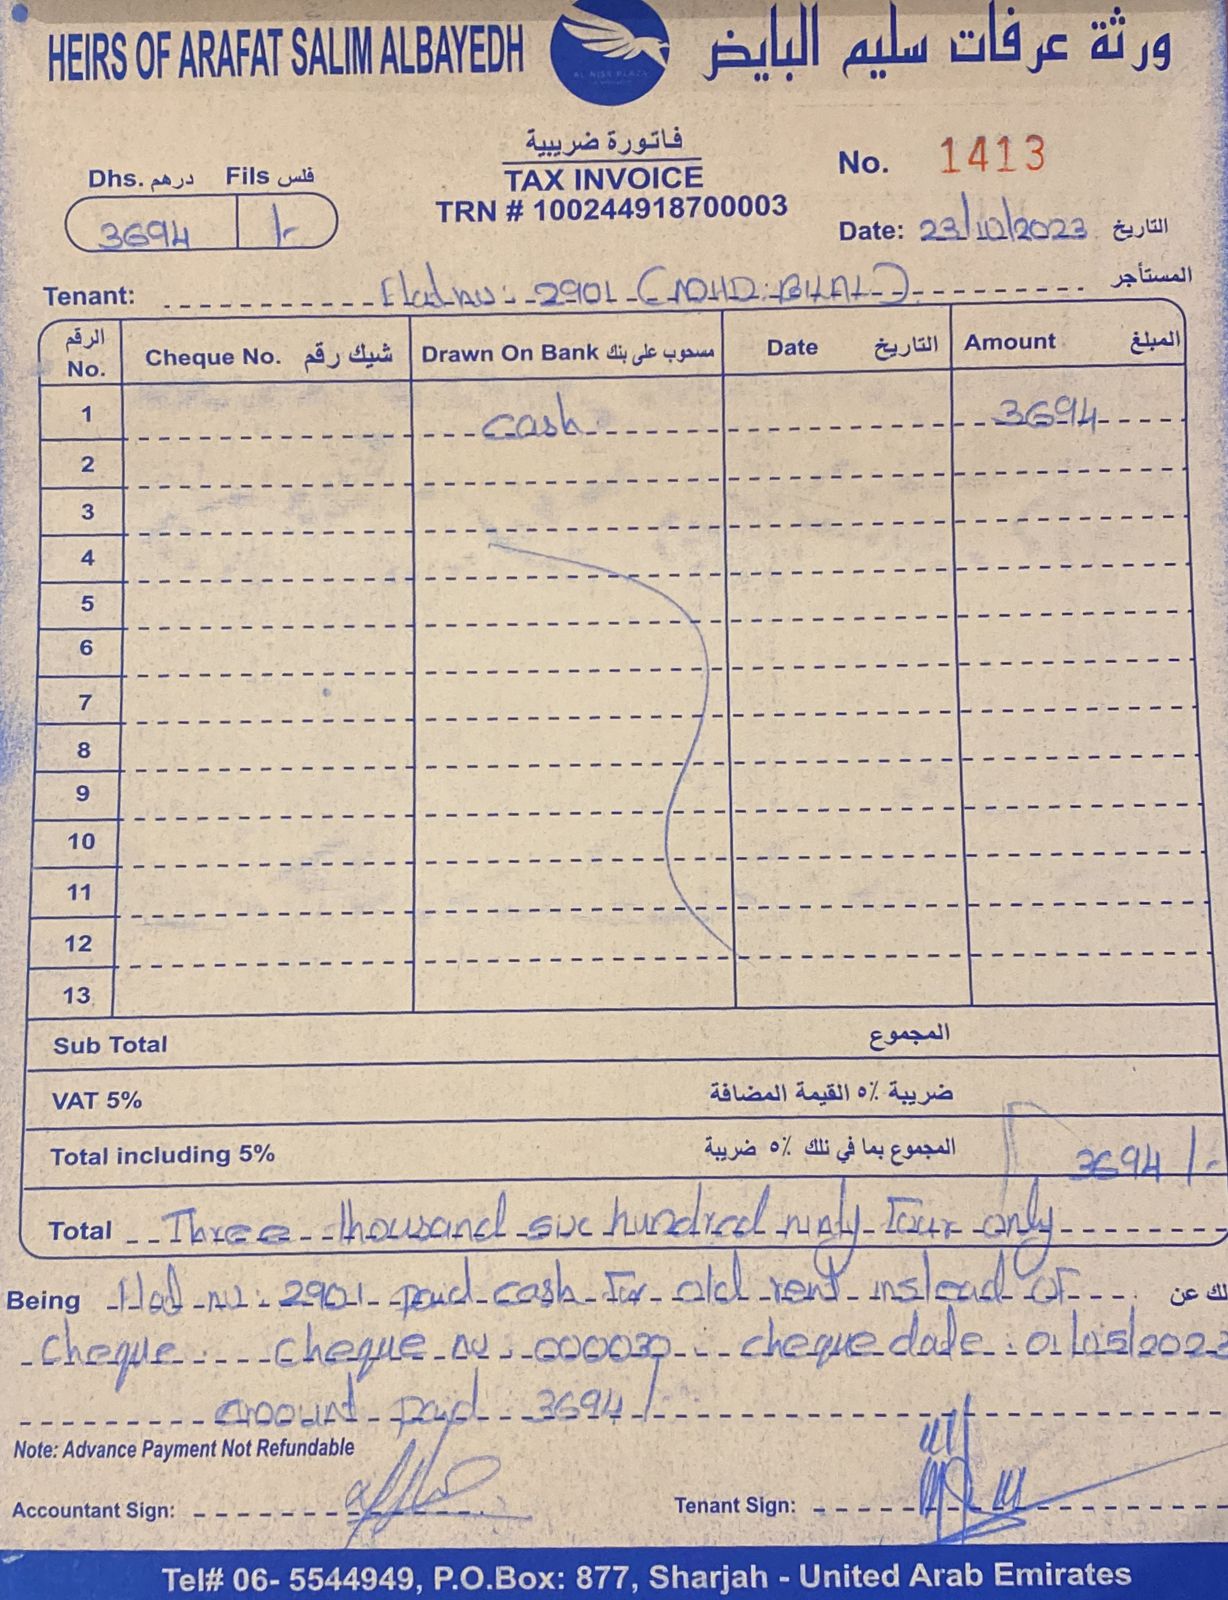 HEIRS OF ARAFAT SALIM ALBAYEDH ورثة عرفات سليم البايض
AL NISR PLAZA
فاتورة ضريبية
TAX INVOICE
TRN # 100244918700003
Dhs. درهم Fils فلس
3694 /-
No. 1413
Date: 23/10/2023 التاريخ
Tenant: Flat no: 2901 (MOHD: BILAL) المستأجر
الرقم No. Cheque No. شيك رقم Drawn On Bank مسحوب على بنك Date التاريخ Amount المبلغ
1 cash 3694
2
3
4
5
6
7
8
9
10
11
12
13
Sub Total المجموع
VAT 5% ضريبة ٥٪ القيمة المضافة
Total including 5% المجموع بما في تلك ٥٪ ضريبة 3694/-
Total Three thousand six hundred ninty four only
Being Flat no: 2901 paid cash for old rent instead of لك عن
cheque cheque no: 000030 cheque date: 01/05/2023
amount paid 3694/
Note: Advance Payment Not Refundable
Accountant Sign: Tenant Sign:
Tel# 06- 5544949, P.O.Box: 877, Sharjah - United Arab Emirates